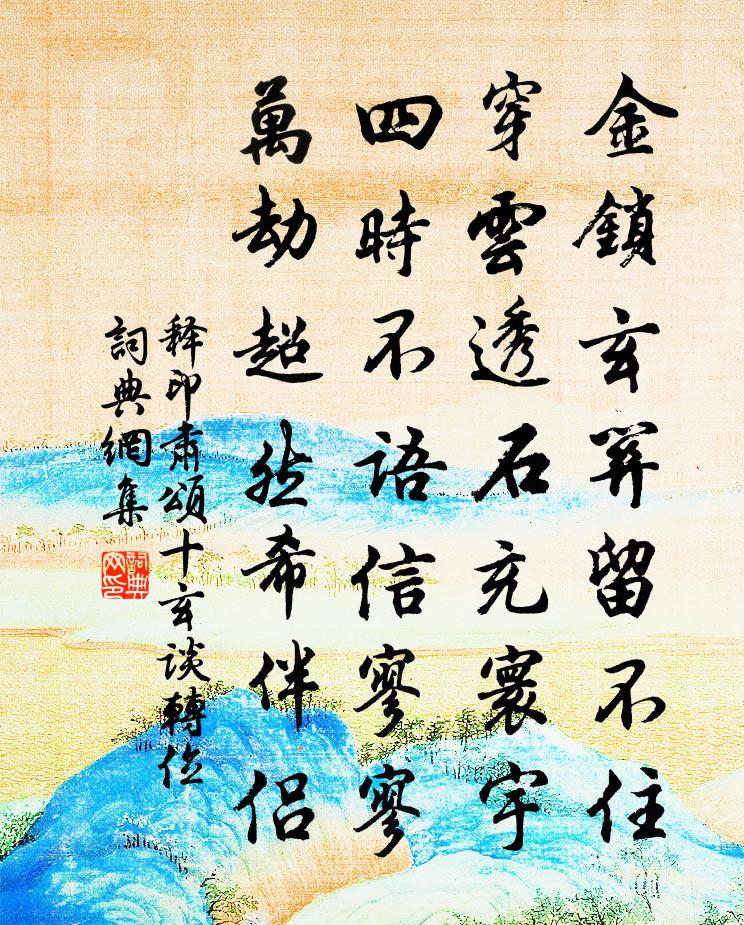 金鎖玄關留不住
穿雲透石充寰宇
四時不語信寥寥
萬劫超然希伴侶
释印肅頌十玄談轉位
詞典網集
詞典网印